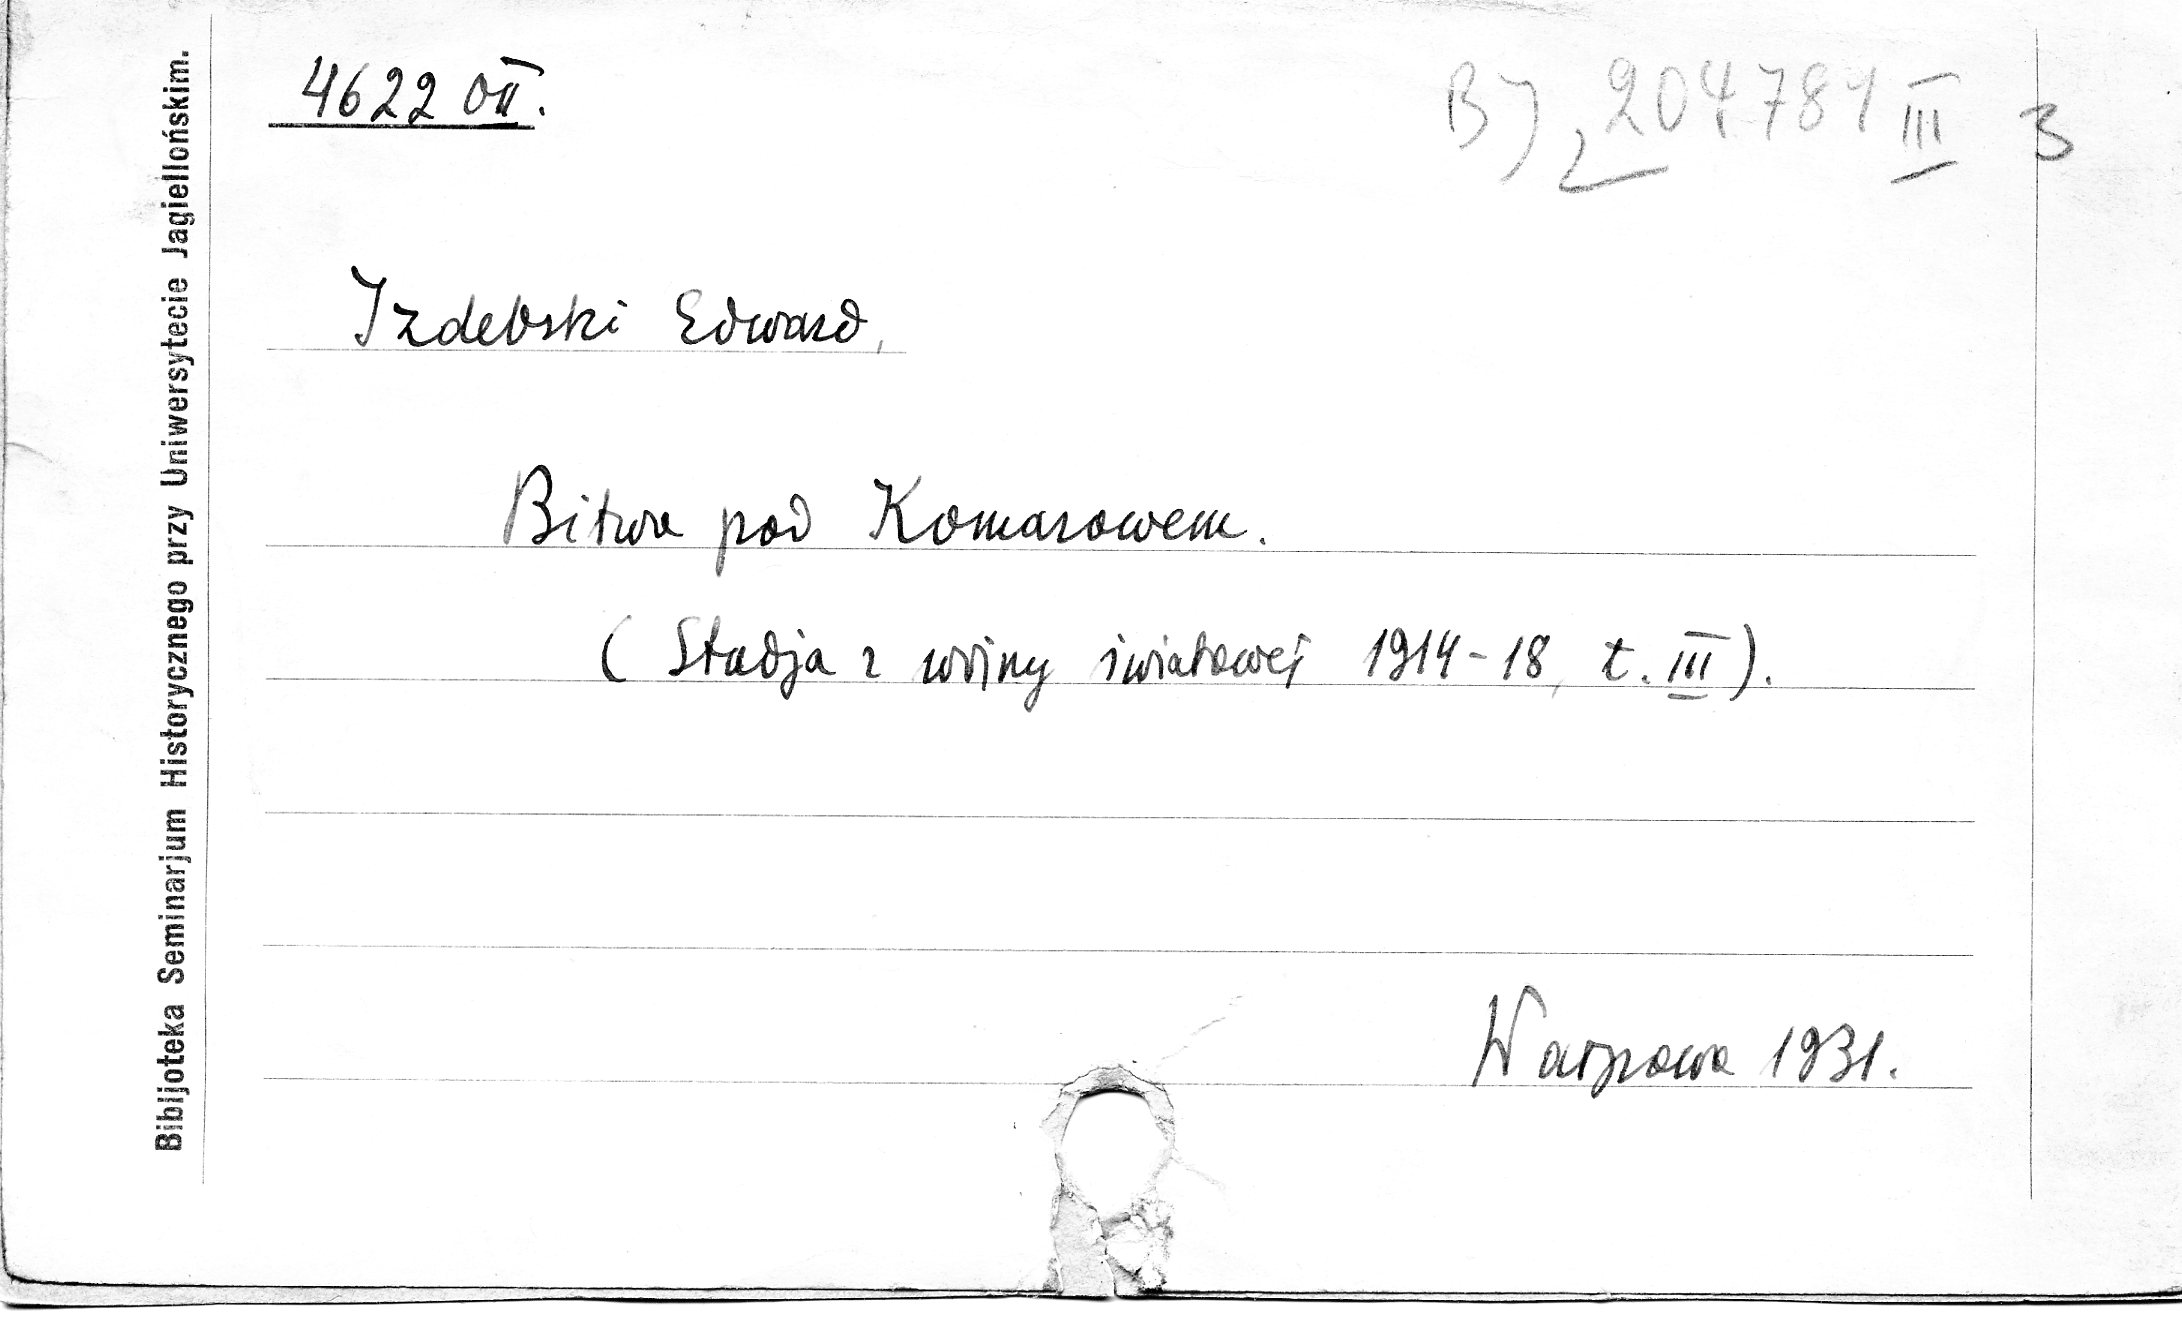 4622 OII.
BJ 204781 III 3
Izdebski Edward,
Bitwa pod Komarowem.
(Studja z wojny światowej 1914-18, t. III).
Warszawa 1931.
Bibljoteka Seminarjum Historycznego przy Uniwersytecie Jagiellońskim.